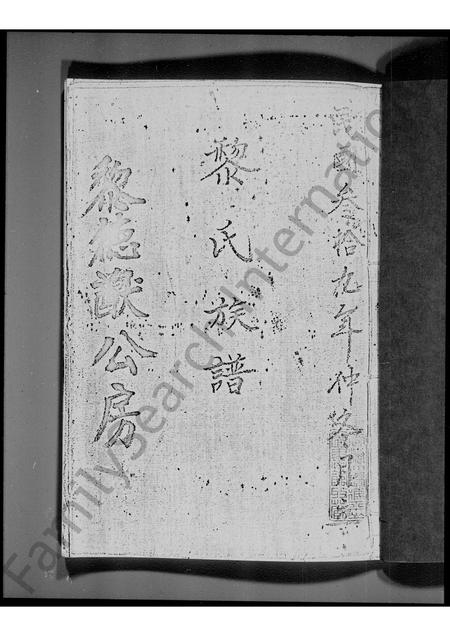 民國叁拾九年仲冬月
黎氏族譜
黎德猷公房
FamilySearch International